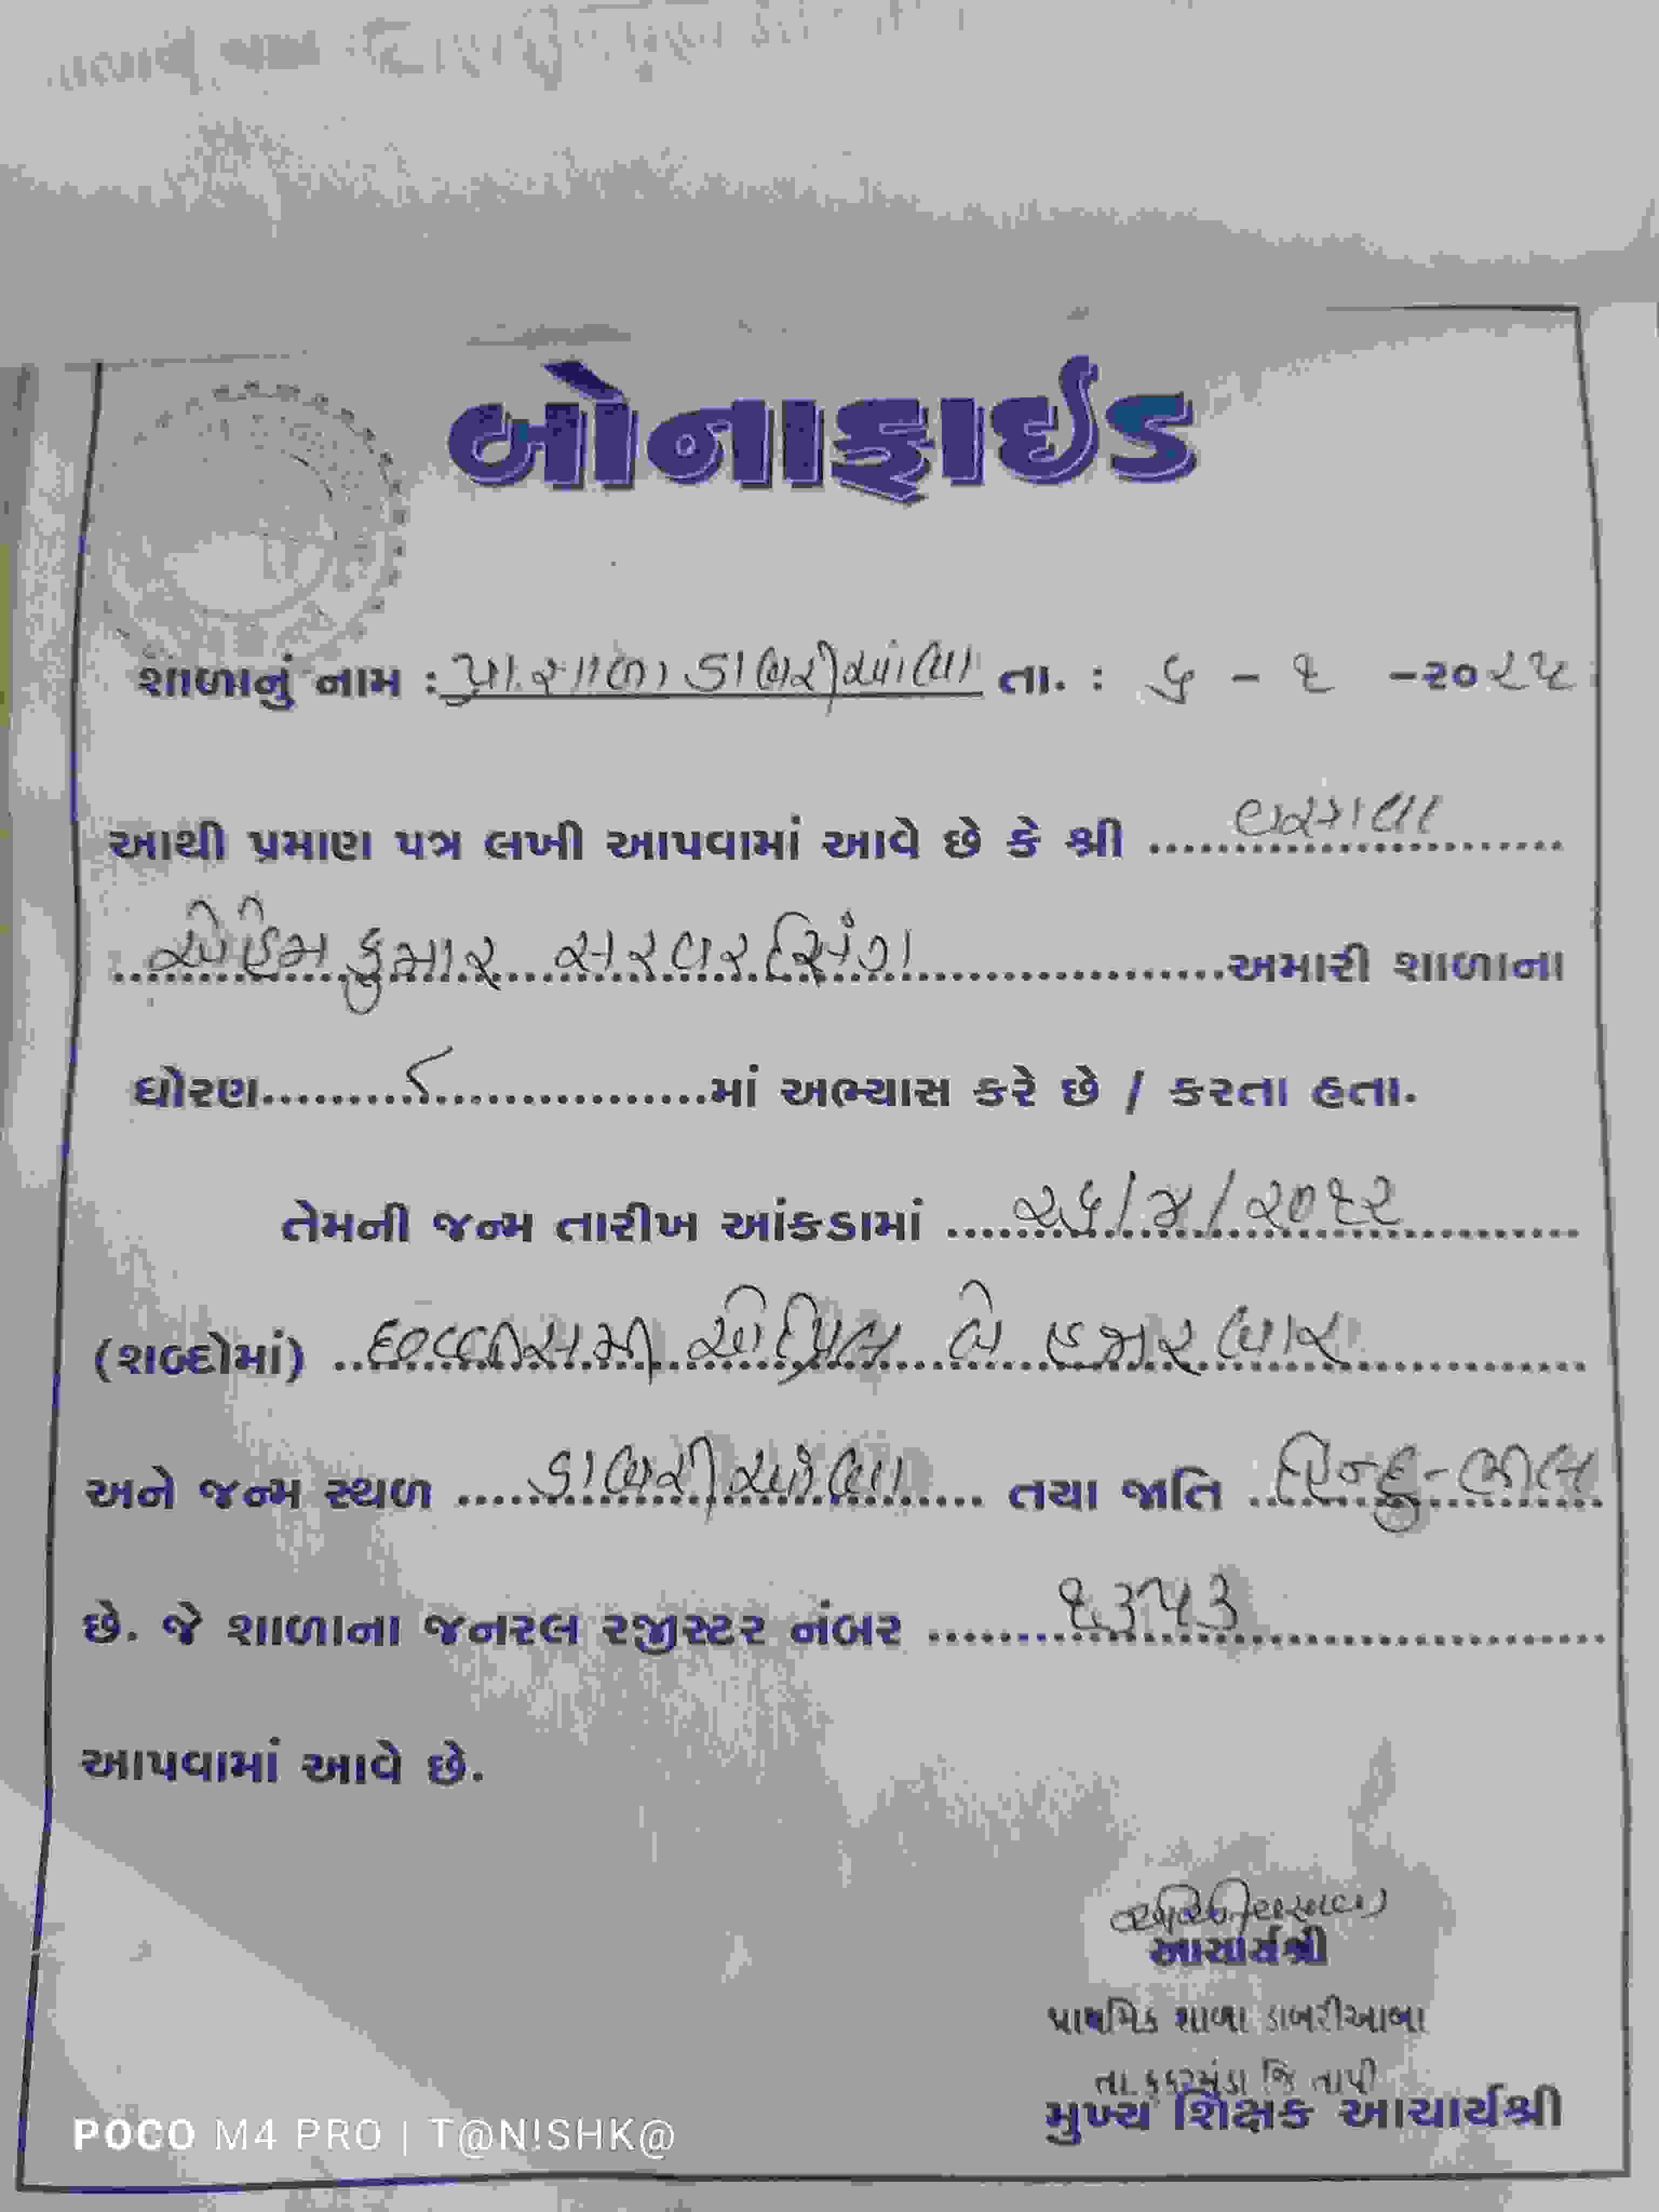 બોનાફાઈડ
શાળાનું નામ : પ્રા.શાળા ડાબરીઆંબા તા. : ૬ - ૧ -૨૦૨૫
આથી પ્રમાણ પત્ર લખી આપવામાં આવે છે કે શ્રી
કુમાર અમારી શાળાના
ધોરણ ૮ માં અભ્યાસ કરે છે / કરતા હતા.
તેમની જન્મ તારીખ આંકડામાં ૨૬/૪/૨૦૧૨
(શબ્દોમાં) છવ્વીસમી એપ્રિલ બે હજાર બાર
અને જન્મ સ્થળ ડાબરીઆંબા તથા જાતિ હિન્દુ-ભીલ
છે. જે શાળાના જનરલ રજીસ્ટર નંબર ૧૩૫૩
આપવામાં આવે છે.
આચાર્યશ્રી
પ્રાથમિક શાળા ડાબરીઆંબા
તા. કુકરમુંડા જિ તાપી
મુખ્ય શિક્ષક આચાર્યશ્રી
POCO M4 PRO | T@N!SHK@